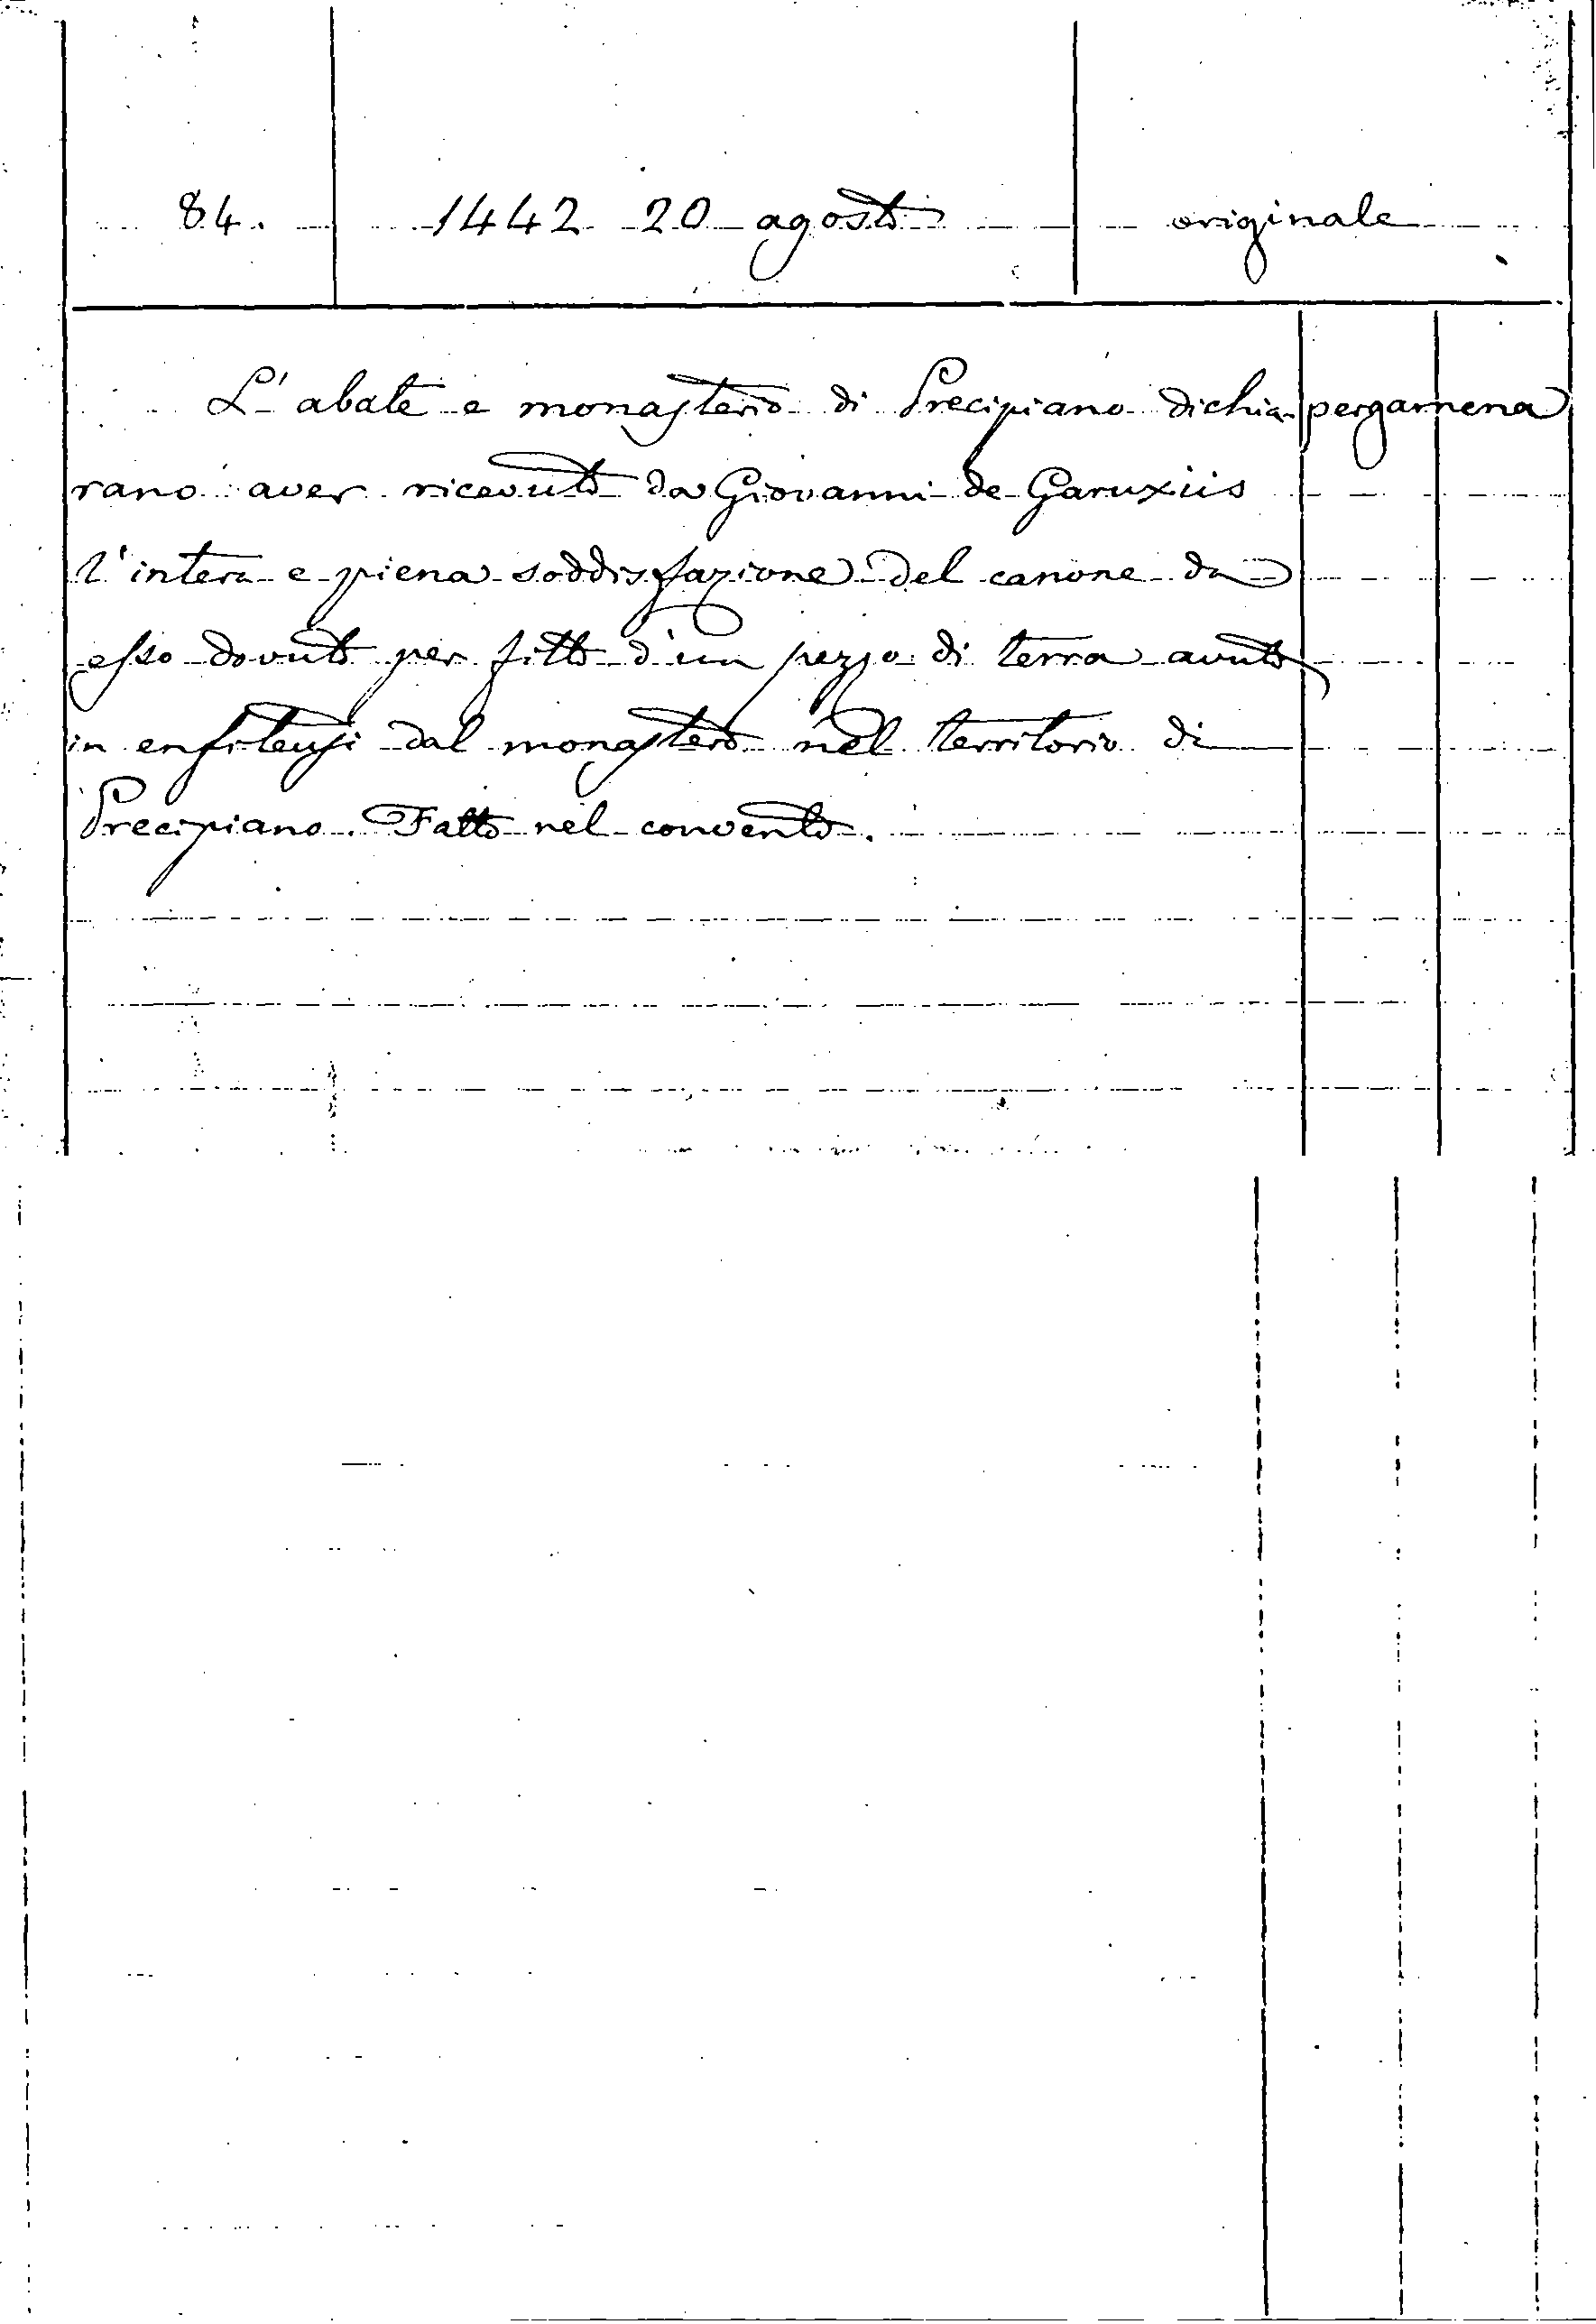 84. 1442 20 agosto originale
L'abate e monasterio di Precipiano dichia- pergamena
rano aver ricevuto da Giovanni de Garuxiis
l'intera e piena soddisfazione del canone da
esso dovuto per fitto d'un pezzo di terra avuto
in enfiteusi dal monastero nel territorio di
Precipiano. Fatto nel convento.